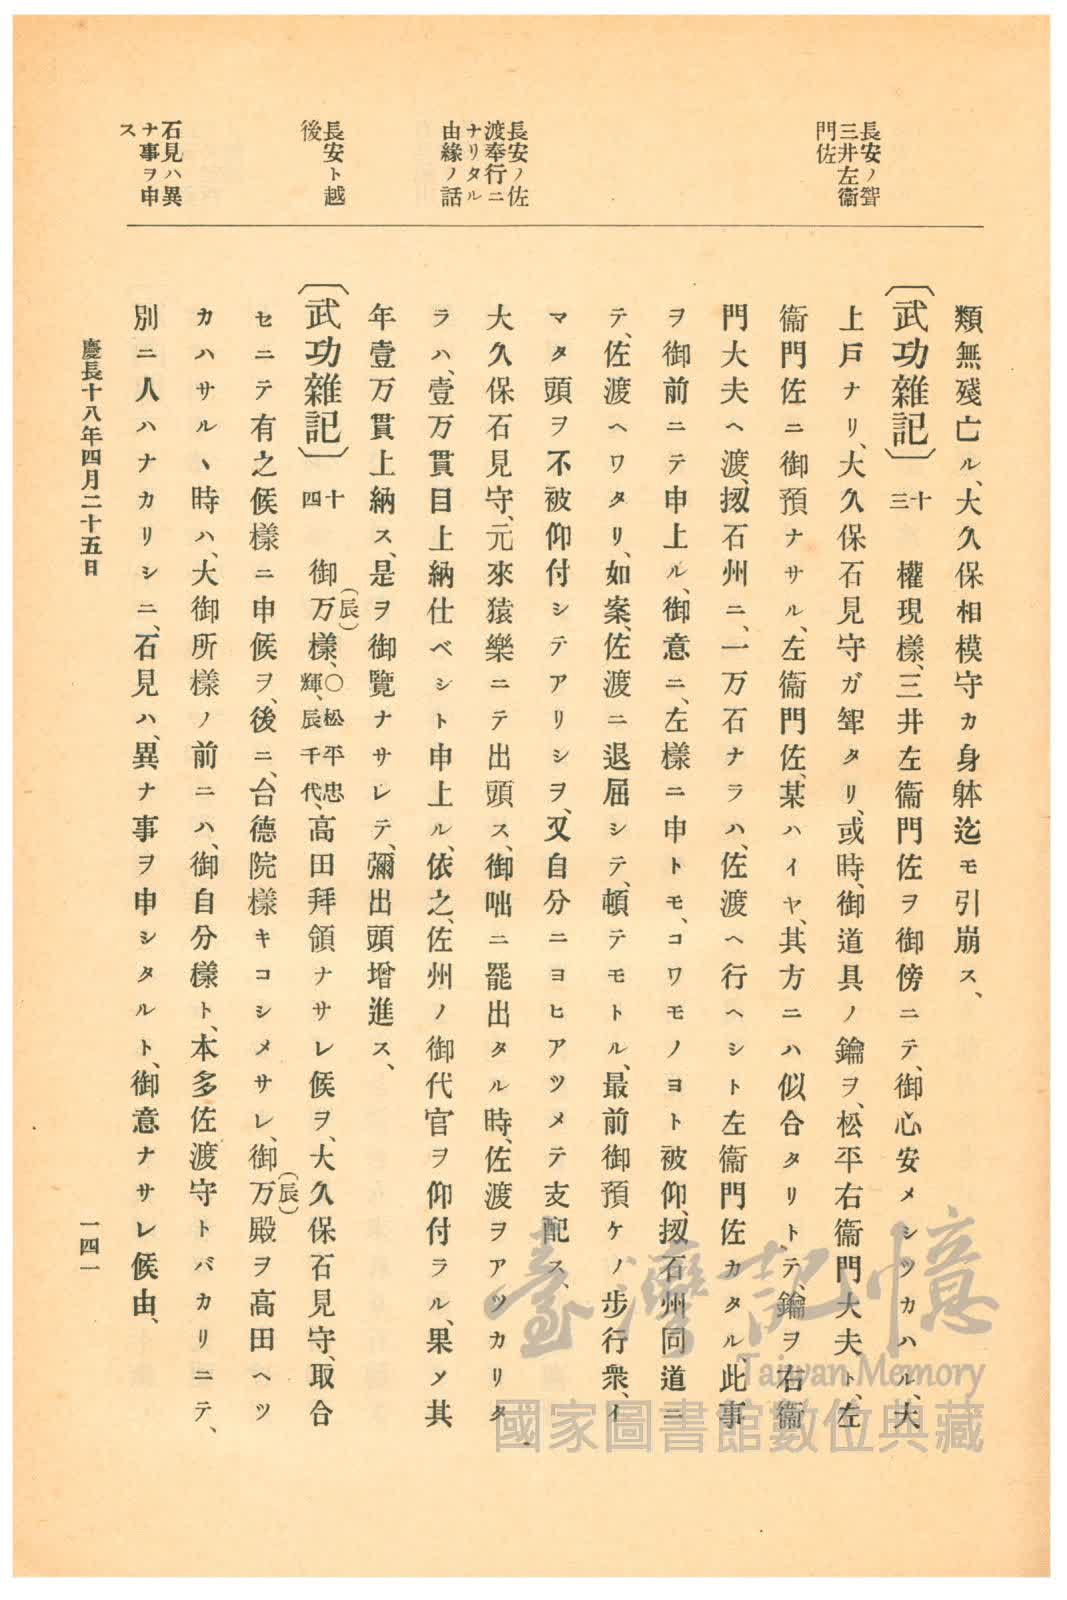 長安ノ聟
三井左衞
門佐
長安ノ佐
渡奉行ニ
ナリタル
由緣ノ話
長安ト越
後
石見ハ異
ナ事ヲ申
ス
類無殘亡ル、大久保相模守カ身躰迄モ引崩ス、
〔武功雜記〕十三 權現樣、三井左衞門佐ヲ御傍ニテ、御心安メシツカハル、大
上戸ナリ、大久保石見守ガ聟タリ、或時、御道具ノ鑰ヲ、松平右衞門大夫ト、左
衞門佐ニ御預ナサル、左衞門佐、某ハイヤ、其方ニハ似合タリト、テ、鑰ヲ右衞
門大夫ヘ渡、扨石州ニ、一万石ナラハ、佐渡ヘ行ヘシト左衞門佐カタル、此事
ヲ御前ニテ申上ル、御意ニ、左樣ニ申トモ、コワモノヨト被仰、扨石州同道ニ
テ、佐渡ヘワタリ、如案、佐渡ニ退屈シテ、頓テモトル、最前御預ケノ步行衆、イ
マタ頭ヲ不被仰付シテアリシヲ、又自分ニヨヒアツメテ支配ス、
大久保石見守、元來猿樂ニテ出頭ス、御咄ニ罷出タル時、佐渡ヲアツカリタ
ラハ、壹万貫目上納仕ベシト申上ル、依之、佐州ノ御代官ヲ仰付ラル、果メ其
年壹万貫上納ス、是ヲ御覽ナサレテ、彌出頭增進ス、
〔武功雜記〕十四 御万(辰)樣、〇松平忠輝、辰千代、高田拜領ナサレ候ヲ、大久保石見守、取合
セニテ有之候樣ニ申候ヲ、後ニ、台德院樣キコシメサレ、御万(辰)殿ヲ高田ヘツ
カハサルヽ時ハ、大御所樣ノ前ニハ、御自分樣ト、本多佐渡守トバカリニテ、
別ニ人ハナカリシニ、石見ハ、異ナ事ヲ申シタルト、御意ナサレ候由、
慶長十八年四月二十五日
一四一
臺灣記憶
Taiwan Memory
國家圖書館數位典藏